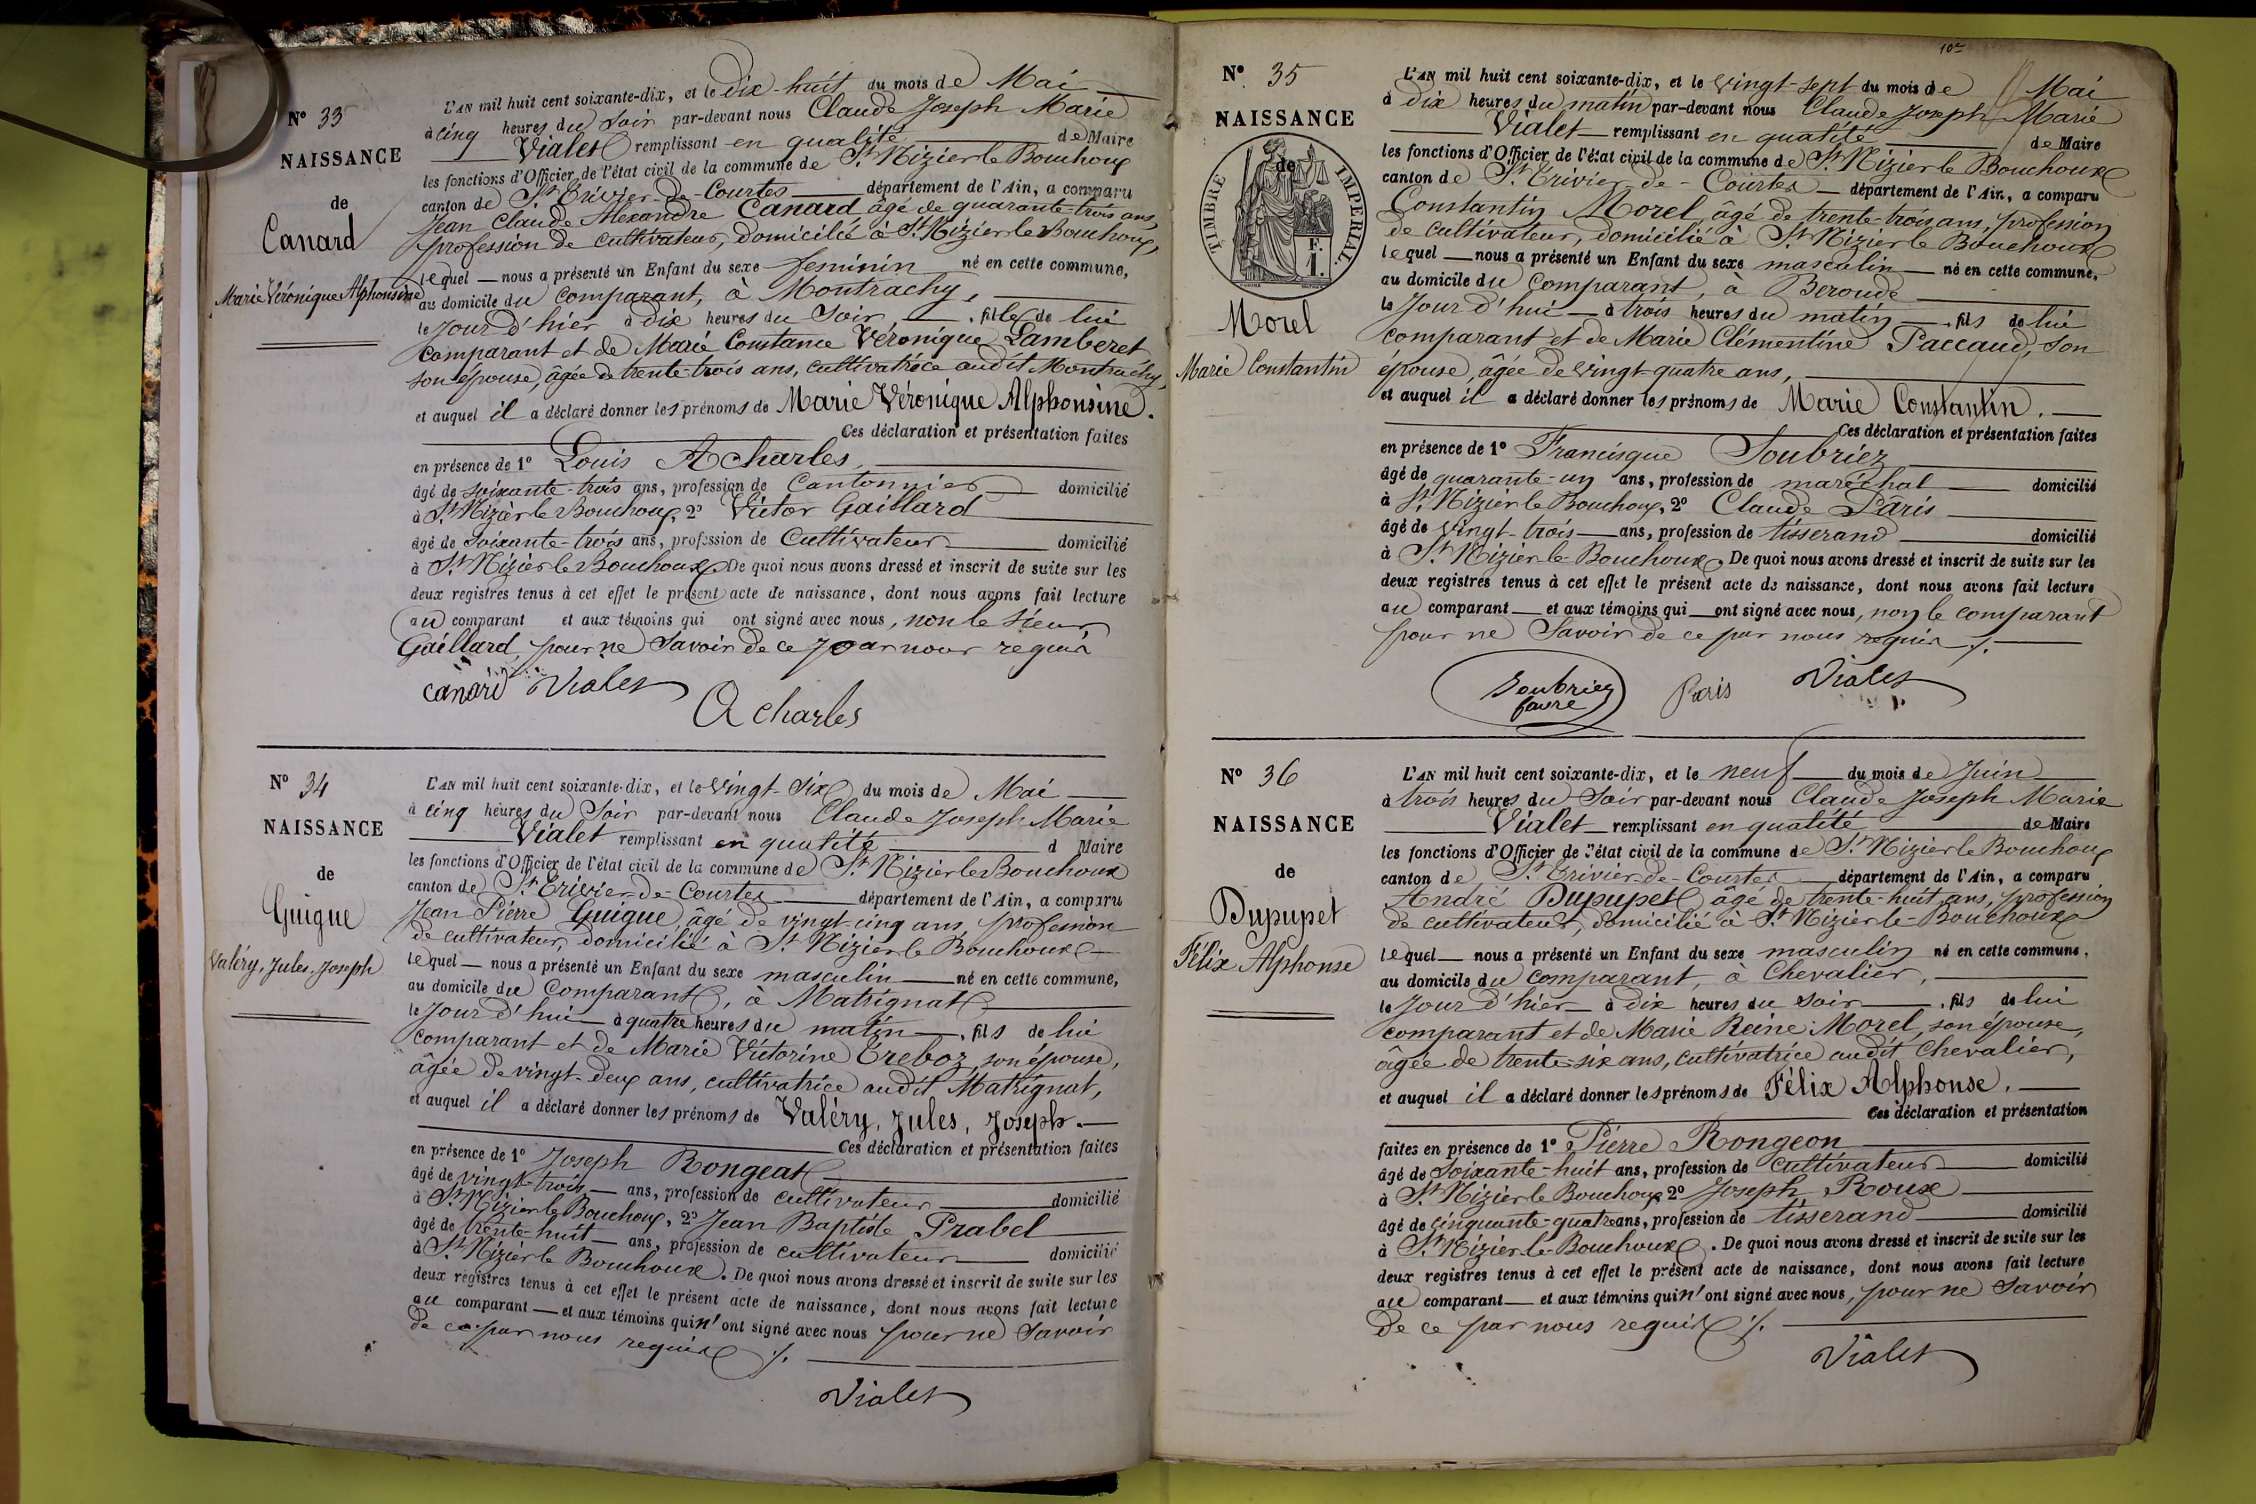 N° 33
NAISSANCE
de
Canard
Marie Véronique Alphonsine
L'AN mil huit cent soixante-dix, et le dix-huit du mois de Mai
à cinq heures du soir par-devant nous Claude Joseph Marie
Vialet remplissant en qualité de Maire
les fonctions d'Officier de l'état civil de la commune de St Nizier le Bouchoux
canton de St Trivier-de-Courtes département de l'Ain, a comparu
Jean Claude Alexandre Canard, âgé de quarante-trois ans,
profession de cultivateur, domicilié à St Nizier le Bouchoux,
lequel nous a présenté un Enfant du sexe féminin né en cette commune,
au domicile du comparant, à Montrachy,
le jour d'hier à dix heures du soir, fille de lui
comparant et de Marie Constance Véronique Lamberet,
son épouse, âgée de trente-trois ans, cultivatrice audit Montrachy,
et auquel il a déclaré donner les prénoms de Marie Véronique Alphonsine.
Ces déclaration et présentation faites
en présence de 1° Louis Acharles,
âgé de soixante-trois ans, profession de Cantonnier domicilié
à St Nizier le Bouchoux, 2° Victor Gaillard
âgé de soixante-trois ans, profession de Cultivateur domicilié
à St Nizier le Bouchoux. De quoi nous avons dressé et inscrit de suite sur les
deux registres tenus à cet effet le présent acte de naissance, dont nous avons fait lecture
au comparant et aux témoins qui ont signé avec nous, non le sieur
Gaillard, pour ne savoir de ce par nous requis
canard Vialet
Acharles
N° 34
NAISSANCE
de
Guigue
Valéry, Jules, Joseph
L'AN mil huit cent soixante-dix, et le vingt-six du mois de Mai
à cinq heures du soir par-devant nous Claude Joseph Marie
Vialet remplissant en qualité d Maire
les fonctions d'Officier de l'état civil de la commune de St Nizier le Bouchoux
canton de St Trivier-de-Courtes département de l'Ain, a comparu
Jean Pierre Guigue, âgé de vingt-cinq ans, profession
de cultivateur, domicilié à St Nizier le Bouchoux
lequel nous a présenté un Enfant du sexe masculin né en cette commune,
au domicile du comparant, à Matrignat
le jour d'hui à quatre heures du matin, fils de lui
comparant et de Marie Victorine Éreboz, son épouse,
âgée de vingt-deux ans, cultivatrice audit Matrignat,
et auquel il a déclaré donner les prénoms de Valéry, Jules, Joseph.
Ces déclaration et présentation faites
en présence de 1° Joseph Rongeat
âgé de vingt-trois ans, profession de cultivateur domicilié
à St Nizier le Bouchoux, 2° Jean Baptiste Prabel
âgé de trente-huit ans, profession de cultivateur domicilié
à St Nizier le Bouchoux. De quoi nous avons dressé et inscrit de suite sur les
deux registres tenus à cet effet le présent acte de naissance, dont nous avons fait lecture
au comparant et aux témoins qui n'ont signé avec nous pour ne savoir
de ce par nous requis ./.
Vialet
10e
N° 35
NAISSANCE
de
TIMBRE IMPERIAL
F.
1.
Morel
Marie Constantin
L'AN mil huit cent soixante-dix, et le vingt-sept du mois de Mai
à dix heures du matin par-devant nous Claude Joseph Marie
Vialet remplissant en qualité de Maire
les fonctions d'Officier de l'état civil de la commune de St Nizier le Bouchoux
canton de St Trivier-de-Courtes département de l'Ain, a comparu
Constantin Morel, âgé de trente-trois ans, profession
de cultivateur, domicilié à St Nizier le Bouchoux
lequel nous a présenté un Enfant du sexe masculin né en cette commune,
au domicile du comparant, à Beroude
le jour d'hui à trois heures du matin, fils de lui
comparant et de Marie Clémentine Paccaud, son
épouse, âgée de vingt-quatre ans,
et auquel il a déclaré donner les prénoms de Marie Constantin.
Ces déclaration et présentation faites
en présence de 1° Francisque Soubriez
âgé de quarante-un ans, profession de maréchal domicilié
à St Nizier le Bouchoux, 2° Claude Pâris
âgé de vingt-trois ans, profession de tisserand domicilié
à St Nizier le Bouchoux. De quoi nous avons dressé et inscrit de suite sur les
deux registres tenus à cet effet le présent acte de naissance, dont nous avons fait lecture
au comparant et aux témoins qui ont signé avec nous, non le comparant
pour ne savoir de ce par nous requis ./.
Soubriez Paris Vialet
favre
N° 36
NAISSANCE
de
Dupupet
Félix Alphonse
L'AN mil huit cent soixante-dix, et le neuf du mois de Juin
à trois heures du soir par-devant nous Claude Joseph Marie
Vialet remplissant en qualité de Maire
les fonctions d'Officier de l'état civil de la commune de St Nizier le Bouchoux
canton de St Trivier-de-Courtes département de l'Ain, a comparu
André Dupupet, âgé de trente-huit ans, profession
de cultivateur, domicilié à St Nizier le Bouchoux
lequel nous a présenté un Enfant du sexe masculin né en cette commune,
au domicile du comparant, à Chevalier,
le jour d'hier à dix heures du soir, fils de lui
comparant et de Marie Reine Morel, son épouse,
âgée de trente-six ans, cultivatrice audit Chevalier,
et auquel il a déclaré donner les prénoms de Félix Alphonse.
Ces déclaration et présentation
faites en présence de 1° Pierre Rongeon
âgé de soixante-huit ans, profession de cultivateur domicilié
à St Nizier le Bouchoux 2° Joseph Roux
âgé de cinquante-quatre ans, profession de tisserand domicilié
à St Nizier le Bouchoux. De quoi nous avons dressé et inscrit de suite sur les
deux registres tenus à cet effet le présent acte de naissance, dont nous avons fait lecture
au comparant et aux témoins qui n'ont signé avec nous, pour ne savoir
de ce par nous requis ./.
Vialet